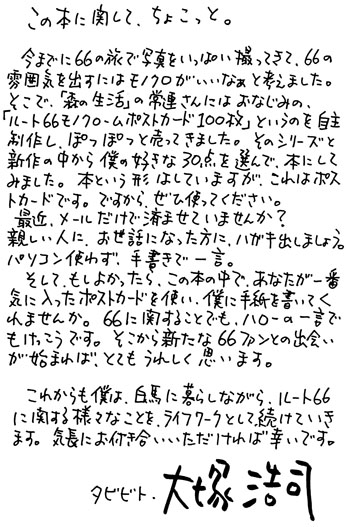 この本に関して、ちょこっと。
今までに66の旅で写真をいっぱい撮ってきて、66の
雰囲気を出すにはモノクロがいいなぁと考えました。
そこで、「森の生活」の常連さんにはおなじみの、
「ルート66モノクロームポストカード100枚」というのを自主
制作し、ぽっぽっと売ってきました。そのシリーズと
新作の中から僕の好きな30点を選んで、本にして
みました。本という形はしていますが、これはポス
トカードです。ですから、ぜひ使ってください。
最近、メールだけで済ませていませんか？
親しい人に、お世話になった方に、ハガキ出しましょう。
パソコン使わず、手書きで一言。
そして、もしよかったら、この本の中で、あなたが一番
気に入ったポストカードを使い、僕に手紙を書いてく
れませんか。66に関することでも、ハローの一言で
もけっこうです。そこから新たな66ファンとの出会い
が始まれば、とてもうれしく思います。
これからも僕は、白馬に暮らしながら、ルート66
に関する様々なことを、ライフワークとして続けていき
ます。気長にお付き合いいただければ幸いです。
タビビト・大塚浩司